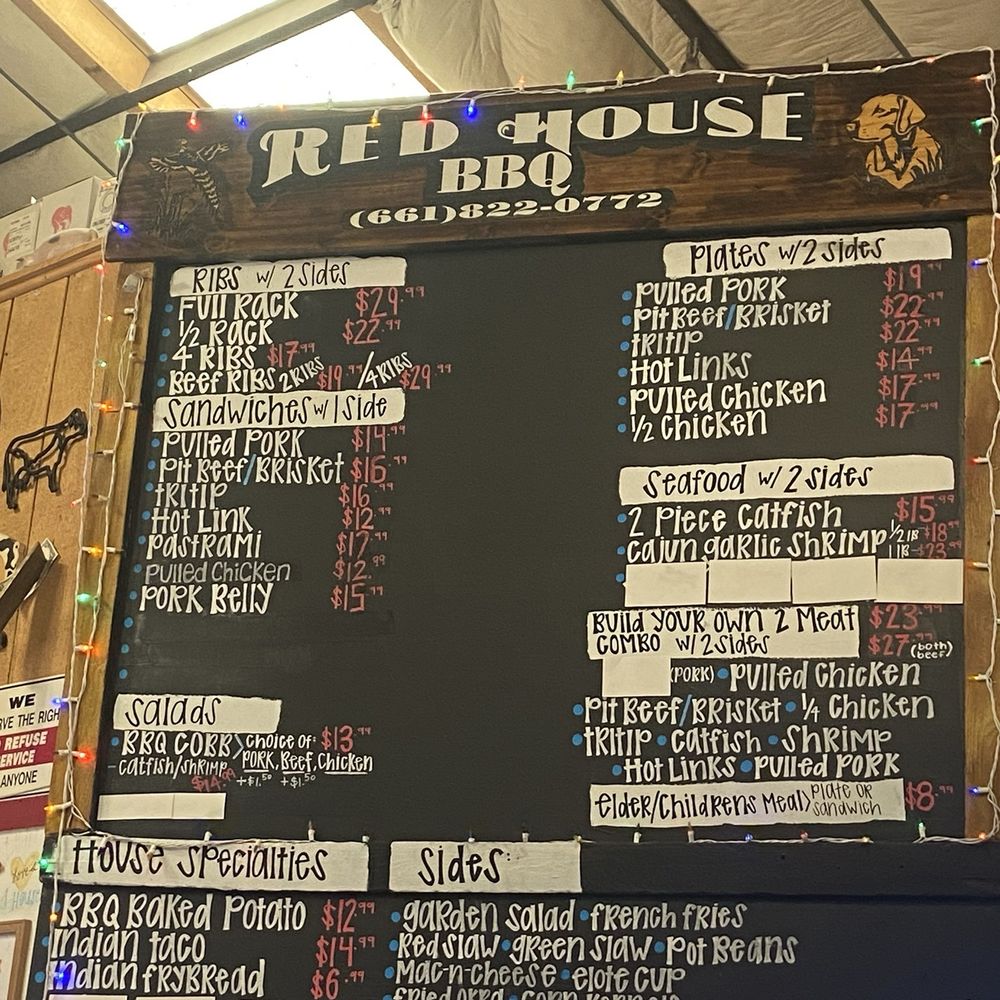 RED HOUSE
BBQ
(661)822-0772
RIBS w/ 2 SIDES
FULL RACK $29.99
1/2 RACK $22.99
4 RIBS $17.99
BEEF RIBS 2 RIBS $19.99 / 4 RIBS $29.99
SANDWICHES w/ 1 SIDE
PULLED PORK $14.99
PIT BEEF/BRISKET $16.99
TRITIP $16.99
HOT LINK $12.99
PASTRAMI $17.99
PULLED CHICKEN $12.99
PORK BELLY $15.99
SALADS
BBQ COBB > CHOICE OF: $13.99
PORK, BEEF, CHICKEN
+$1.50 +$1.50
CATFISH/SHRIMP
$14.99
PLATES w/ 2 SIDES
PULLED PORK $19.99
PIT BEEF/BRISKET $22.99
TRITIP $22.99
HOT LINKS $14.99
PULLED CHICKEN $17.99
1/2 CHICKEN $17.99
SEAFOOD w/ 2 SIDES
2 PIECE CATFISH $15.99
CAJUN GARLIC SHRIMP 1/2 LB $18.99
1 LB $23.99
BUILD YOUR OWN 2 MEAT $23.99
COMBO w/ 2 SIDES $27.99 (both beef)
(PORK) • PULLED CHICKEN
PIT BEEF/BRISKET • 1/4 CHICKEN
• TRITIP • CATFISH • SHRIMP
• HOT LINKS • PULLED PORK
ELDER/CHILDRENS MEAL > PLATE OR SANDWICH $8.99
HOUSE SPECIALTIES
BBQ BAKED POTATO $12.99
INDIAN TACO $14.99
INDIAN FRYBREAD $6.99
SIDES:
• GARDEN SALAD • FRENCH FRIES
• RED SLAW • GREEN SLAW • POT BEANS
• MAC-N-CHEESE • ELOTE CUP
FRIED OKRA
WE
RVE THE RIGH
REFUSE
ERVICE
ANYONE